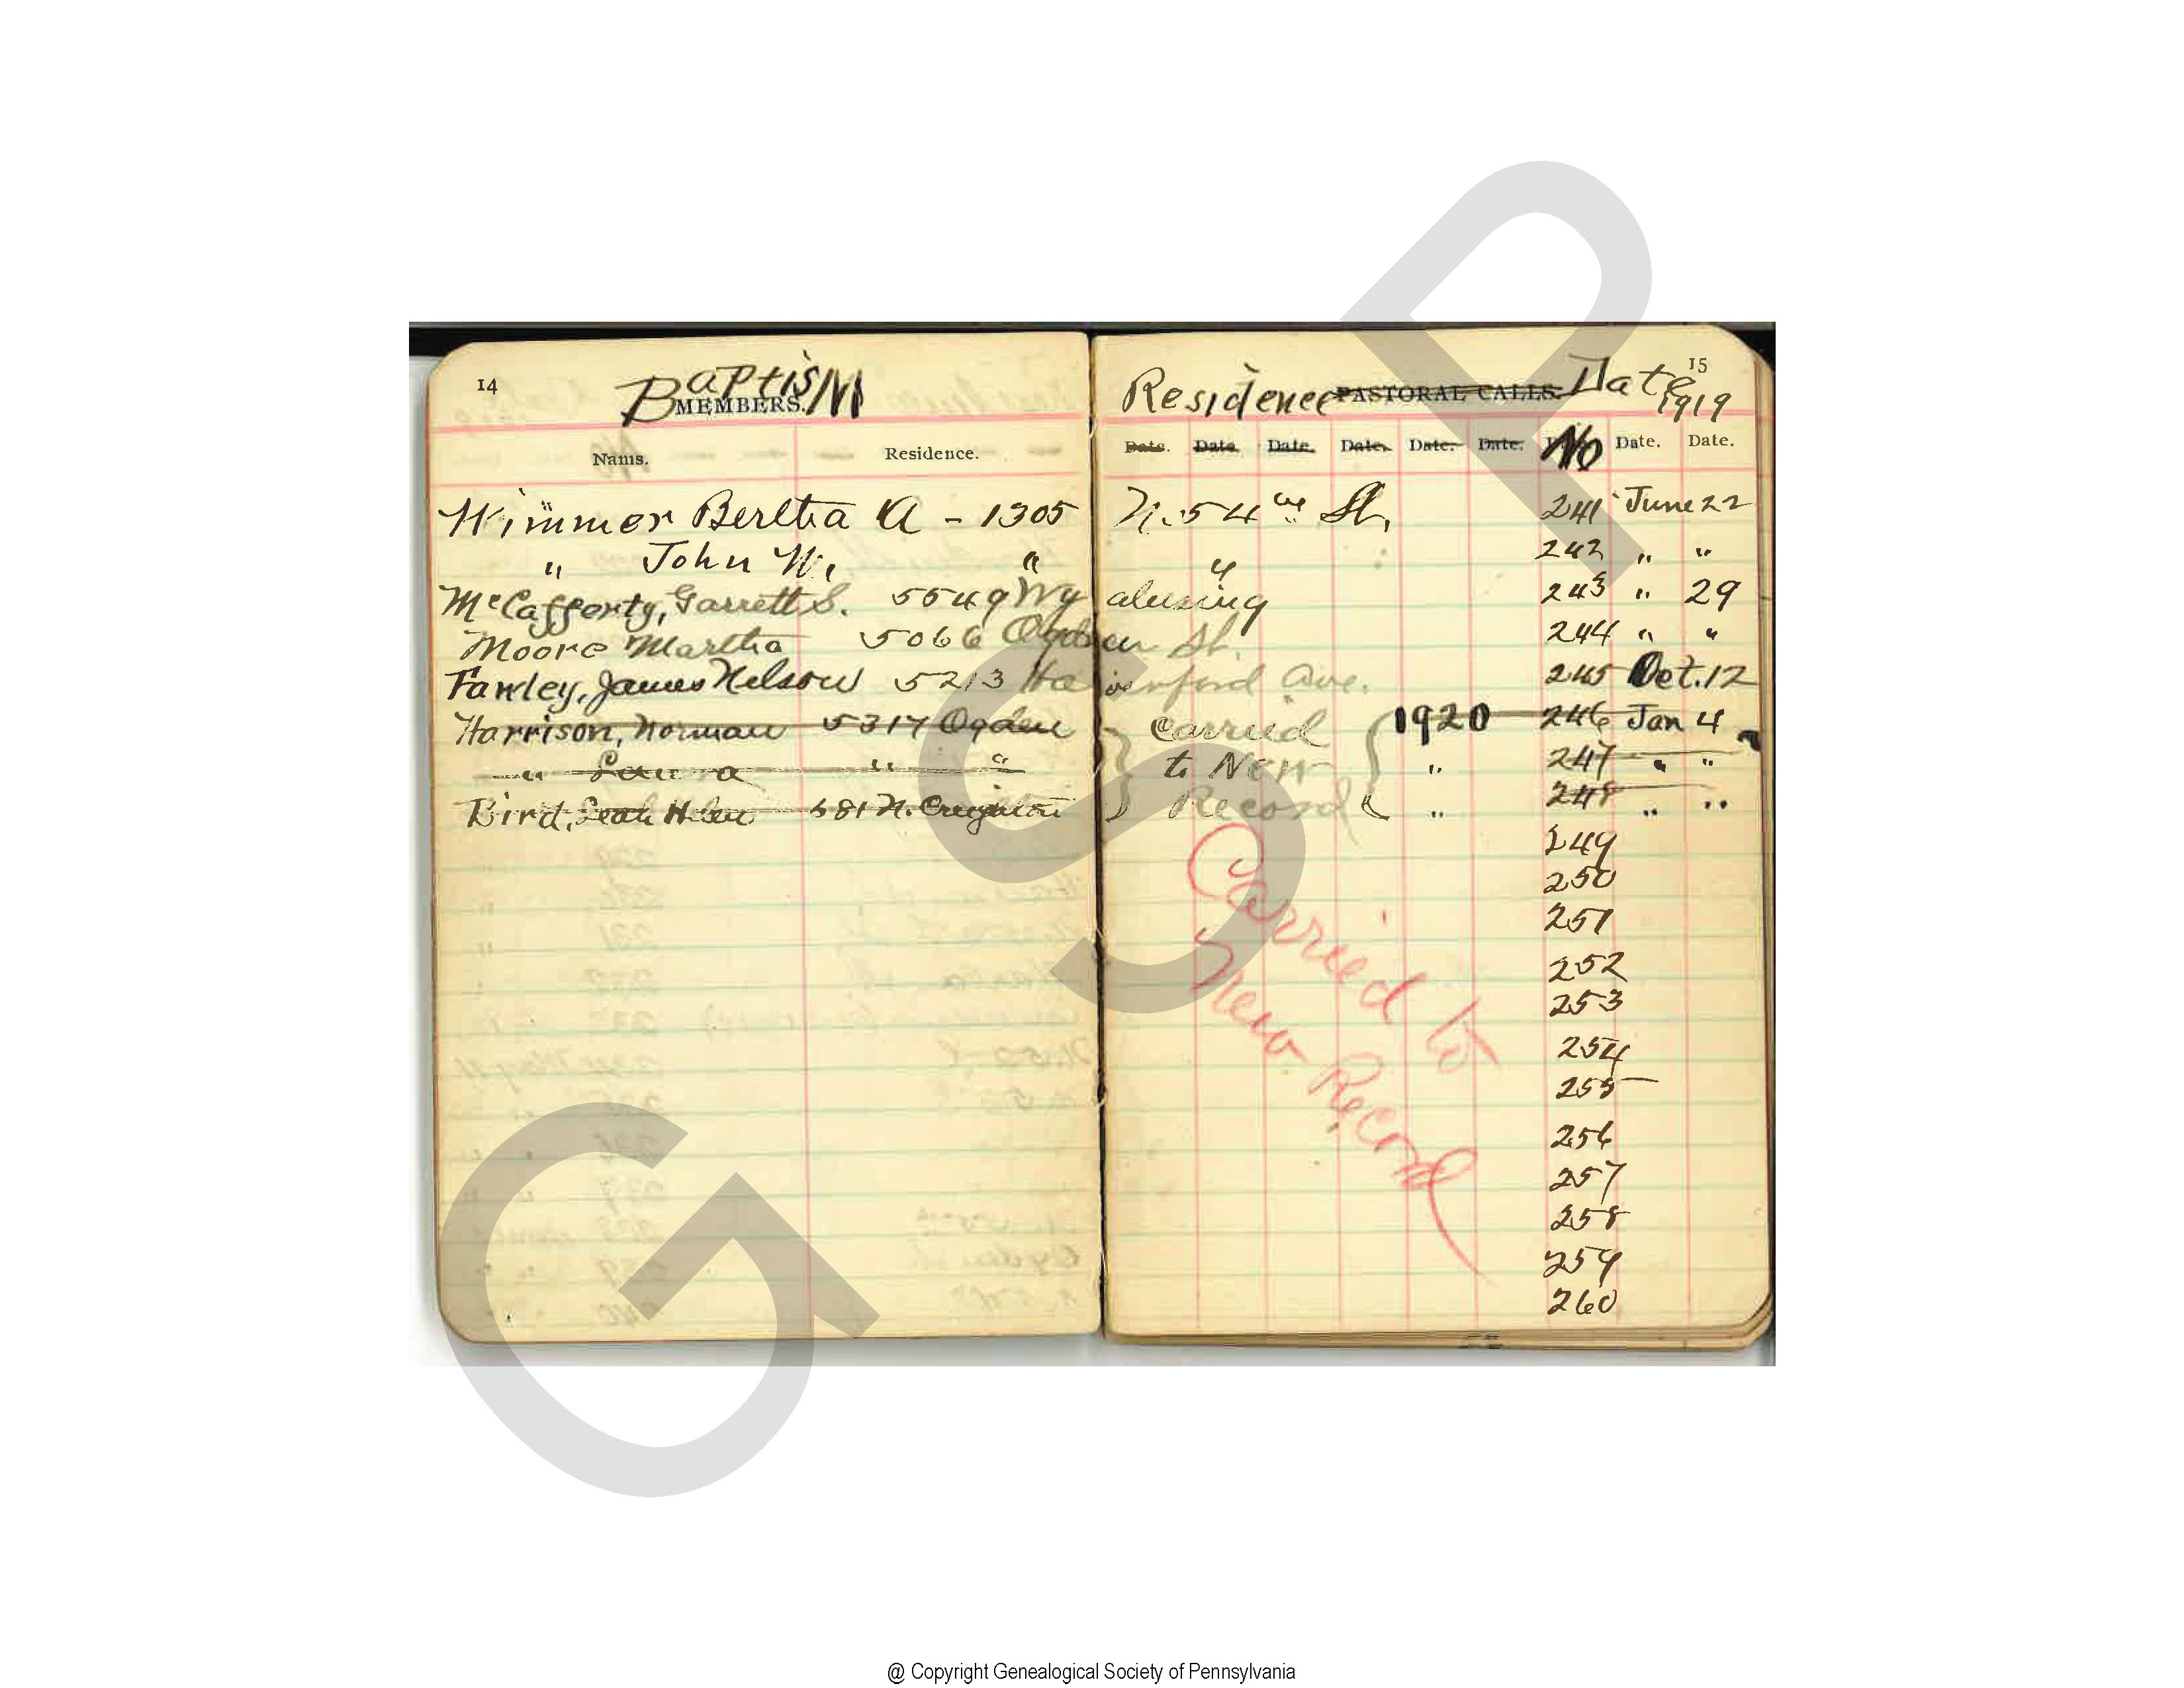 14 BaptisM
MEMBERS.
Residence PASTORAL CALLS. Date 15
1919
Name. Residence.
Date. Date. Date. Date. Date. Date. No Date. Date.
Wimmer Bertha A - 1305 N. 54 St. 241 June 22
" John W. " " 242 " "
McCafferty, Garrett S. 5549 Wyalusing 243 " 29
Moore Martha 5066 Ogden St. 244 " "
Fawley, James Nelson 5213 Haverford Ave. 245 Oct. 12
Harrison, Norman 5317 Ogden } Carried { 1920 246 Jan 4
" a " " to New " 247 " "
Bird, Leah Helen 681 N. Creighton } Record { " 248 " "
249
250
251
252
253
254
255
256
257
258
259
260
Carried to
New Record
G S P
@ Copyright Genealogical Society of Pennsylvania